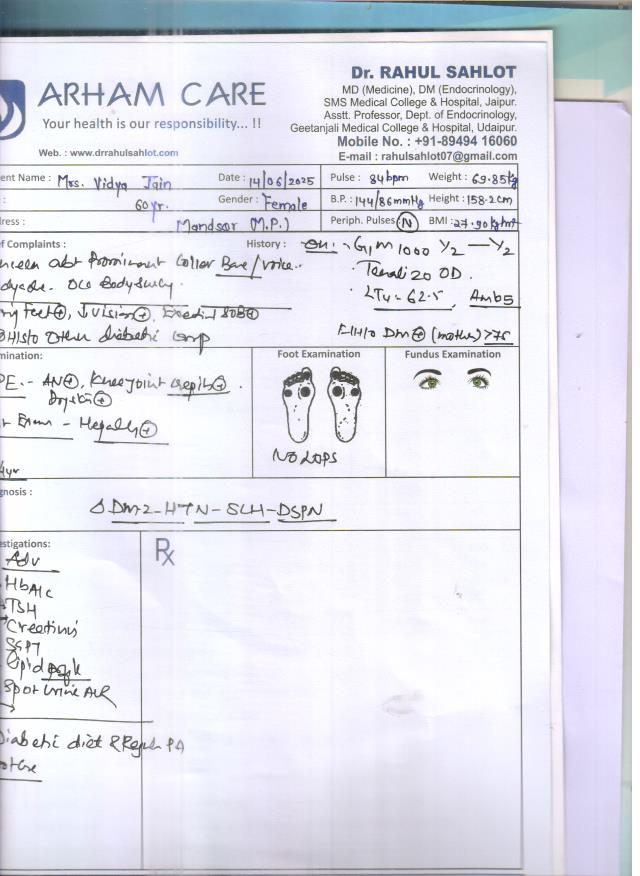 Dr. RAHUL SAHLOT
MD (Medicine), DM (Endocrinology),
SMS Medical College & Hospital, Jaipur.
Asstt. Professor, Dept. of Endocrinology,
Geetanjali Medical College & Hospital, Udaipur.
Mobile No. : +91-89494 16060
E-mail : rahulsahlot07@gmail.com
ARHAM CARE
Your health is our responsibility... !!
Web. : www.drrahulsahlot.com
ent Name : Mrs. Vidya Jain Date : 14/06/2025 Pulse : 84bpm Weight : 69.85kg
: 60yr. Gender : Female B.P. : 144/86mmHg Height : 158.2cm
ress : Mandsor (M.P.) Periph. Pulses : N BMI : 27.90kg/m²
f Complaints : History : On :- G1 M 1000 1/2 — 1/2
abt Prominent Collar Bone/voice..
Tenali 20 OD.
LT4 - 62.5, Amb5
Feet⊕, ↓Vision⊕, SOB⊕
H/o Other diabetic comp
F/H/o DM⊕ (mother) >75
mination: Foot Examination Fundus Examination
PE.- AN⊕, Knee Joint crepits⊕.
- Hepally⊕
NO LOPS
4yr
gnosis :
Δ DM2-HTN-SCH-DSPN
estigations: Rx
Adv
HbA1c
TSH
Creatinine
SGPT
lipid profile
Spot Urine ACR
Diabetic diet & Regular PA